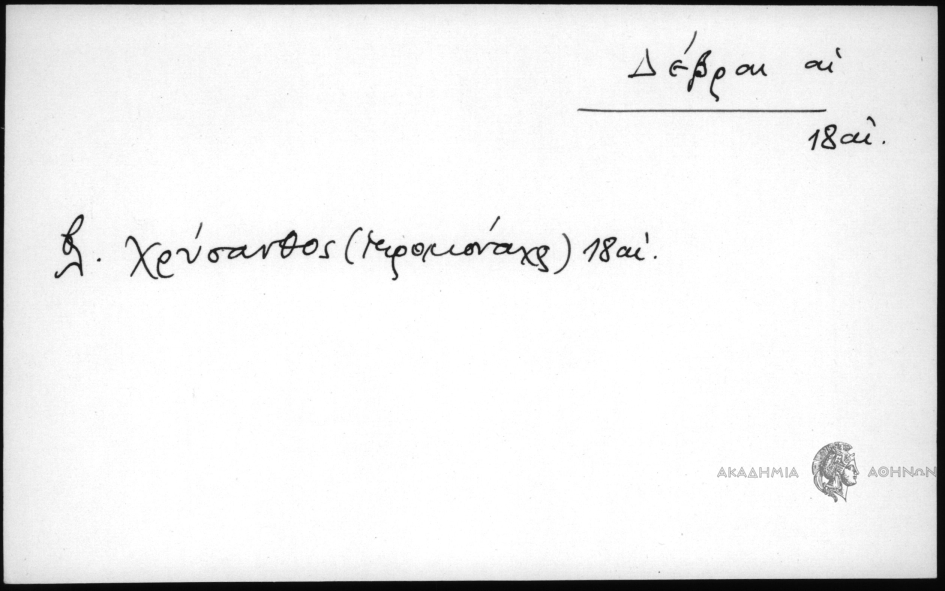 Δέβραι αἱ
18 αἰ.
βλ. Χρύσανθος (ἱερομονάχος) 18 αἰ.
ΑΚΑΔΗΜΙΑ ΑΘΗΝΩΝ